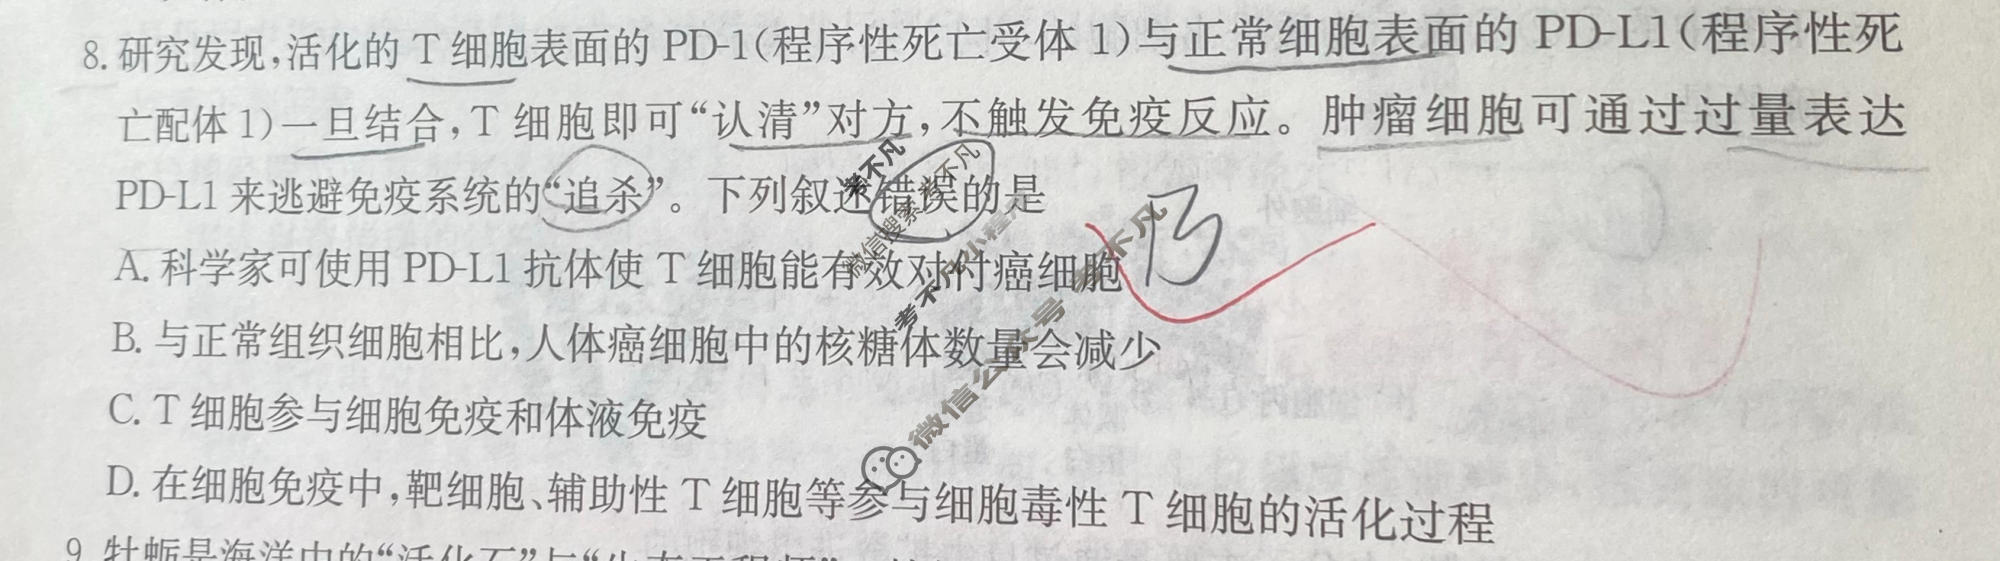 8. 研究发现,活化的 T 细胞表面的 PD-1(程序性死亡受体 1)与正常细胞表面的 PD-L1(程序性死
亡配体 1)一旦结合,T 细胞即可“认清”对方,不触发免疫反应。肿瘤细胞可通过过量表达
PD-L1 来逃避免疫系统的“追杀”。下列叙述错误的是
B
A. 科学家可使用 PD-L1 抗体使 T 细胞能有效对付癌细胞
B. 与正常组织细胞相比,人体癌细胞中的核糖体数量会减少
C. T 细胞参与细胞免疫和体液免疫
D. 在细胞免疫中,靶细胞、辅助性 T 细胞等参与细胞毒性 T 细胞的活化过程
9. 牡蛎是海洋中的“活化石”与“生态工程师”
考不凡
微信搜索 考不凡
考不凡小程序
微信公众号 考不凡